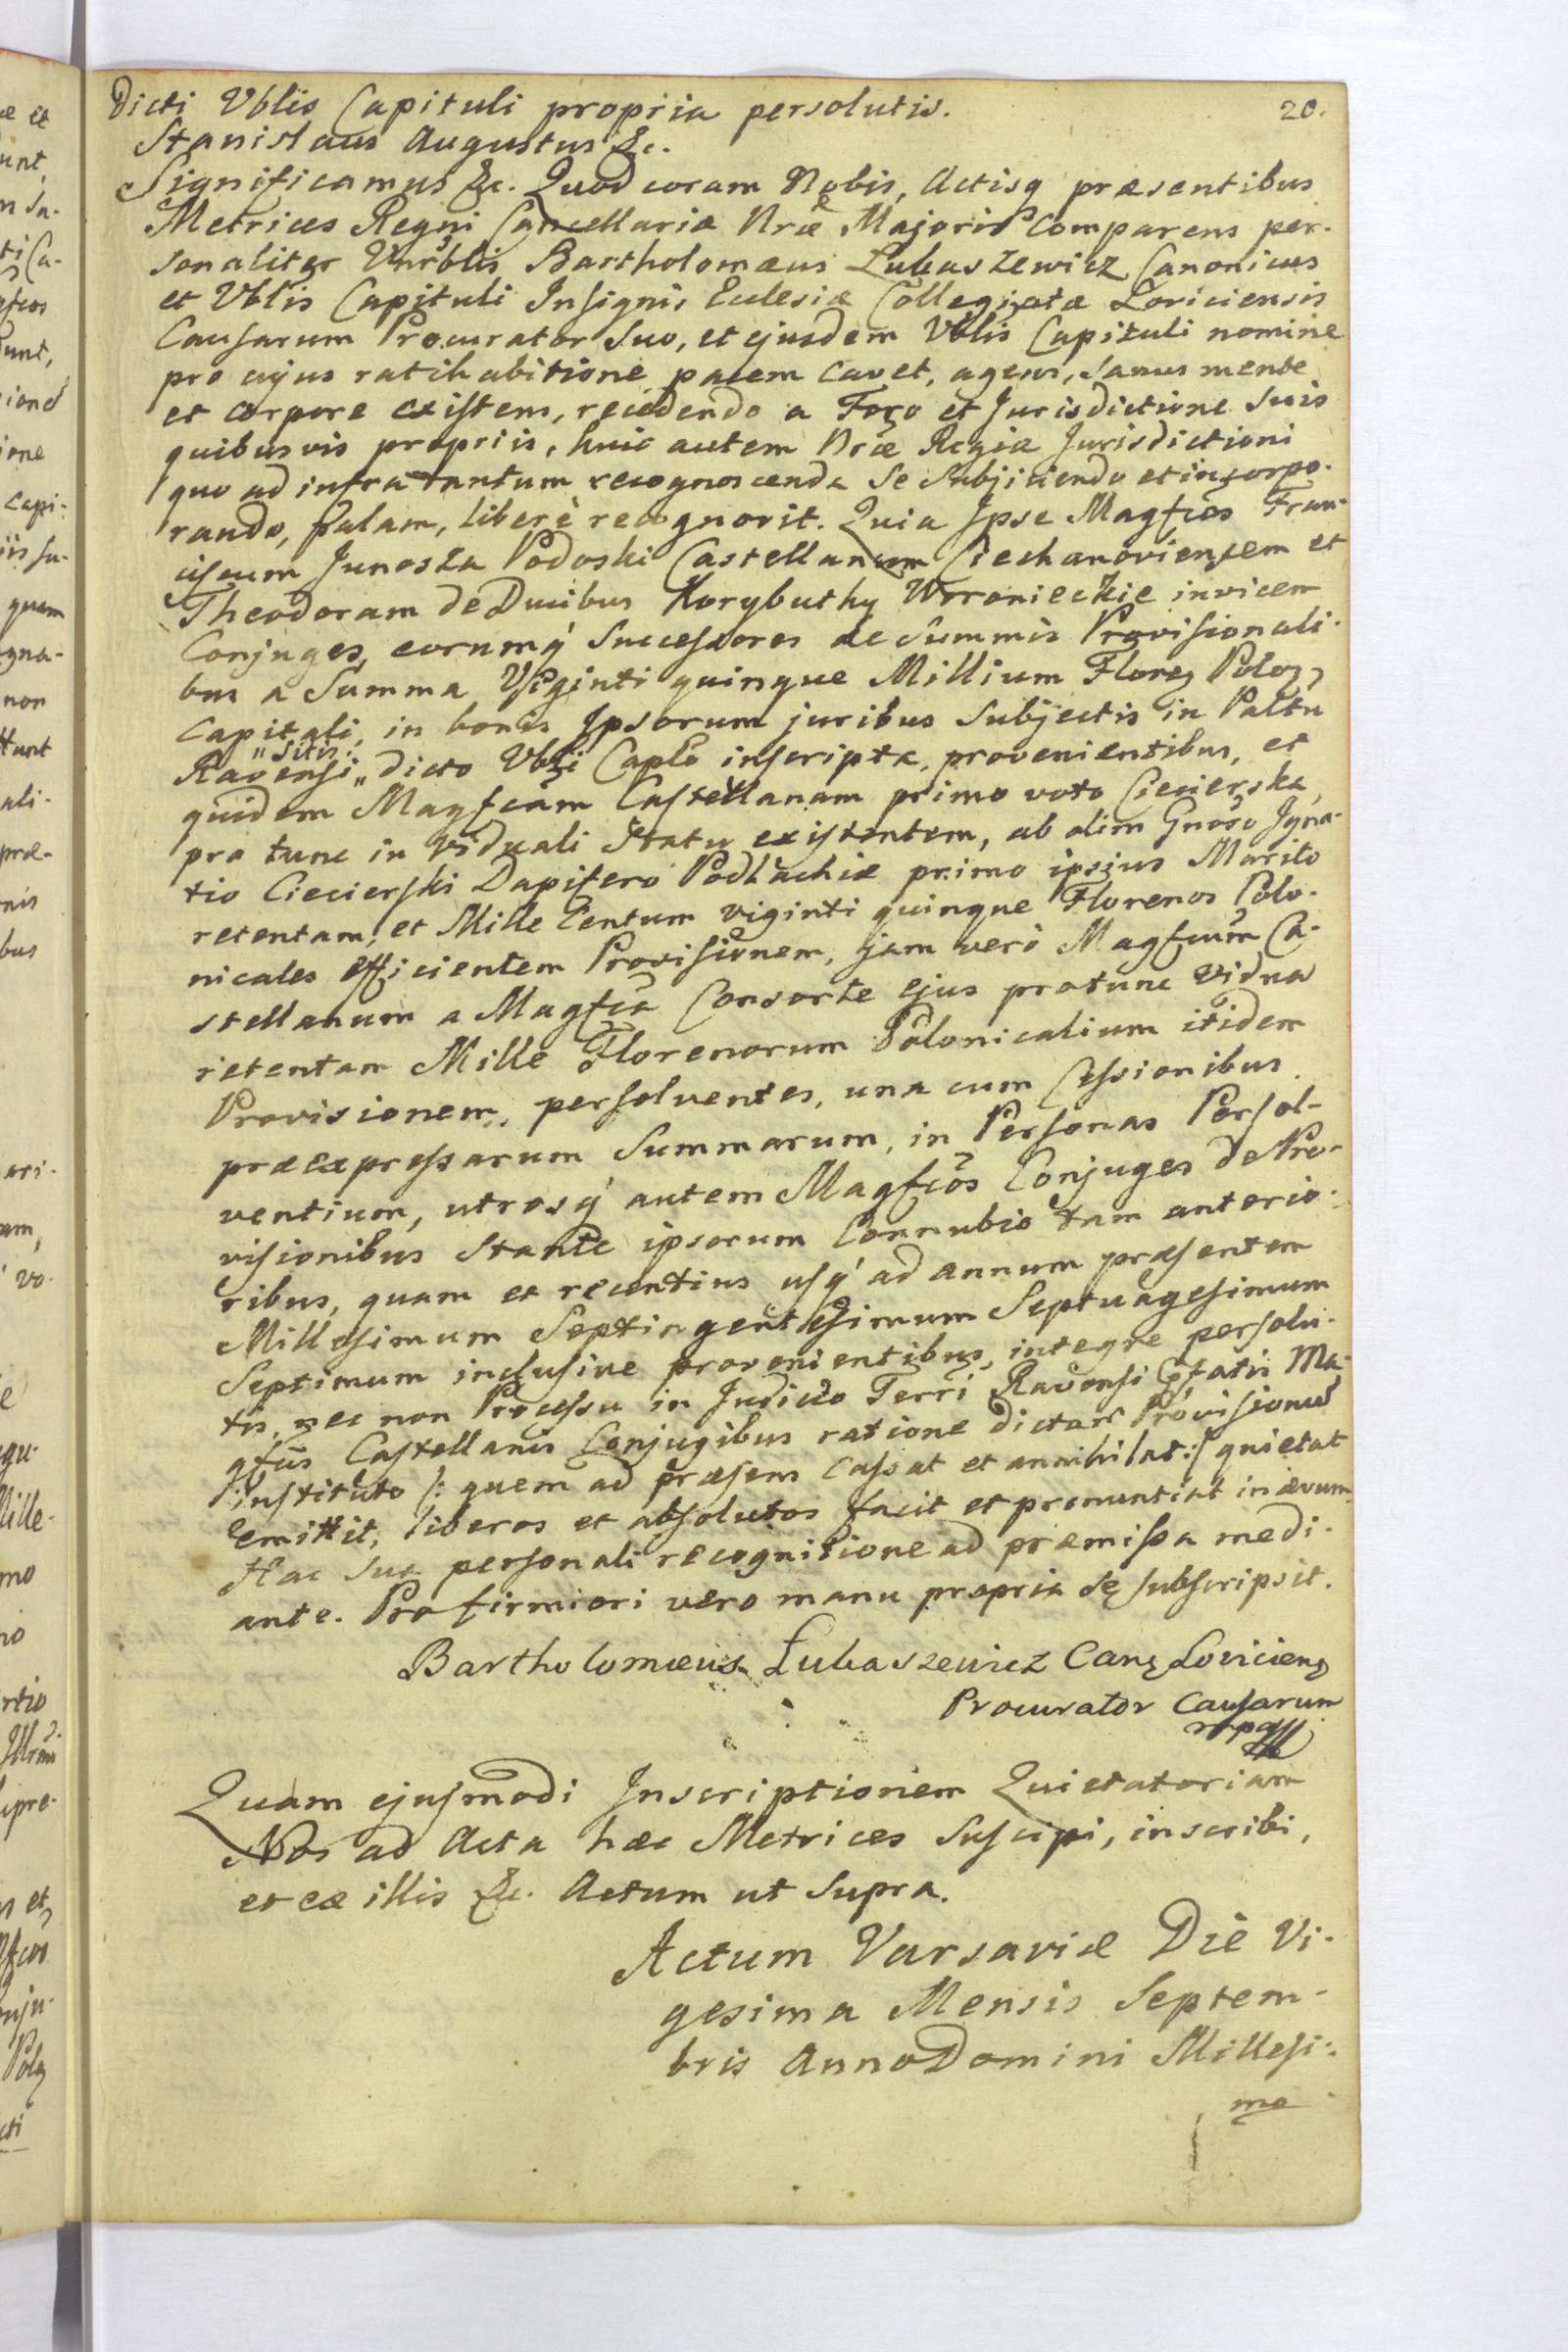 Dicti Vblis Capituli propria persolutis.
20.
Stanislaus Augustus &c.
Significamus &c. Quod coram Nobis, Actisq præsentibus
Metrices Regni Cancellariæ Nræ Majoris Comparens per-
sonaliter Vnrblis Bartholomæus Lukaszewicz Canonicus
et Vblis Capituli Insignis Eclesiæ Collegiatæ Loviciensis
Causarum Procurator Suo, et ejusdem Vblis Capituli nomine
pro cujus ratihabitione pacem cavet, agens, Sanus mente
et corpore existens, recedendo a Foro et Jurisdictione Suis
quibusvis propriis, huic autem Nræ Regiæ Jurisdictioni
quo ad infra tantum recognoscenda Se Subjiciendo et incorpo-
rando, palam, liberè recognovit. Quia Ipse Magfcos Fran-
ciscum Junosza Podoski Castellanum Ciechanoviensem et
Theodoram de Ducibus Korybuthy Woronieckie invicem
Conjuges, eorumq́ Successores de Summis Provisionali-
bus a Summa Viginti quinque Millium Floreз Poloз,
Capitali, in bonis Ipsorum juribus Subjectis in Palttu
„Sitis
Ravensi „ dicto Vbli Caplo inscripta, provenientibus, et
quidem Magfcam Castellanam primo voto Ciecierska,
pro tunc in Viduali Statu existentem, ab olim Gnoso Igna-
tio Ciecierski Dapifero Podlachiæ primo ipsius Marito
retentam, et Mille Centum viginti quinque Florenos Polo-
nicales efficientem Provisionem, jam verò Magfcum Ca-
stellanum a Magfca Consorte ejus protunc Vidua
retentam Mille Florenorum Polonicalium itidem
Provisionem, persolventes, una cum Cessionibus
præexpressarum Summarum, in Personas Persol-
ventium, utrosq́ autem Magfcos Conjuges de Pro-
visionibus Stante ipsorum Connubio tam anterio-
ribus, quam et recentius usq́ ad annum præsentem
Millesimum Septingentesimum Septuagesimum
Septimum inclusive provenientibus, integre persolu-
tis, nec non Processu in Judicio Terri Ravensi Cstatis Ma-
gfcis Castellanis Conjugibus ratione dictar Provisionu
instituto /: quem ad præsens Cassat et annihilat :/ quietat
emittit, liberos et absolutos facit et pronuntiat in ævum.
Hac Sua personali recognitione ad præmissa medi-
ante. Pro firmiori vero manu propria se subscripsit.
Bartholomæus Łukaszewicz Canз Lovicienз
Procurator Causarum
mpa
Quam ejusmodi Inscriptionem Quietatoriam
Nos ad Acta hæc Metrices Suscipi, inscribi,
et ex illis &c. Actum ut Supra.
Actum Varsaviæ Die Vi-
gesima Mensis Septem-
bris Anno Domini Millesi-
mo